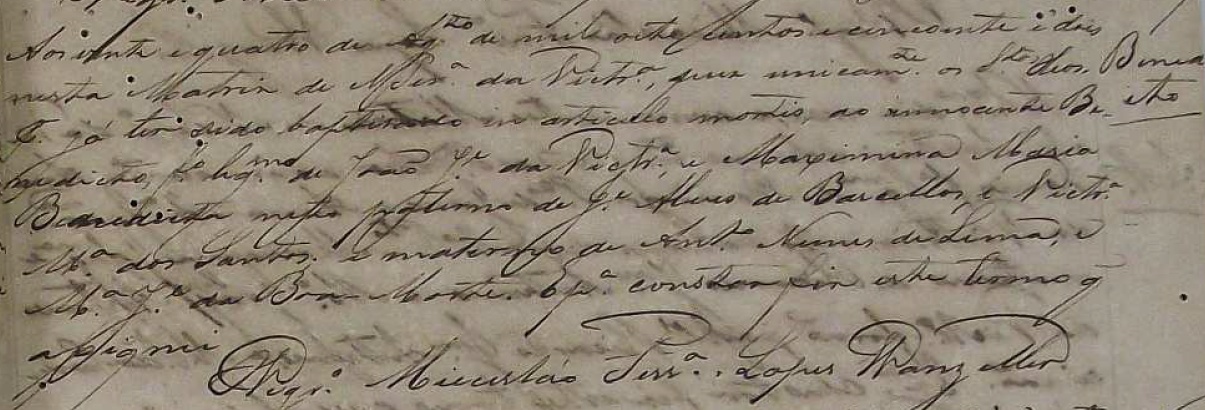 Aos vinte e quatro de Agto de mil oito centos e cincoente e dois
nesta Matriz de N. Senra da Victra, puz unicamte os Stos Oleos. Bened
P. já ter sido baptizado in articulo mortis, ao innocente Be- icto
nedicto, fo legmo de João Je da Victra, e Maximina Maria
Benedicta neto paterno de Je Alves de Barcellos, e Victra
Ma dos Santos. e materno de Anto Nunes de Lima, e
Ma Je da Boa Morte. E pa constar fiz este termo q
assignei
Vigro Miecesláo Ferra Lopes Wanzeller